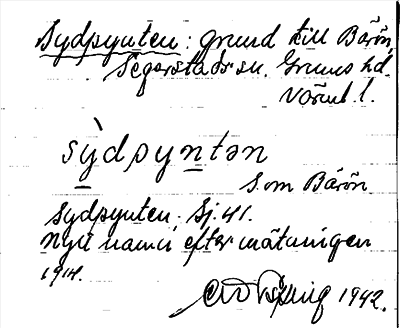 Sydpynten: grund till Bärön,
Segerstads sn. Grums hd.
Värml. l.
sỳdpyntən
S. om Bärön.
Sydpynten. Sj. 41.
Nytt namn efter mätningen
1914.
1942.